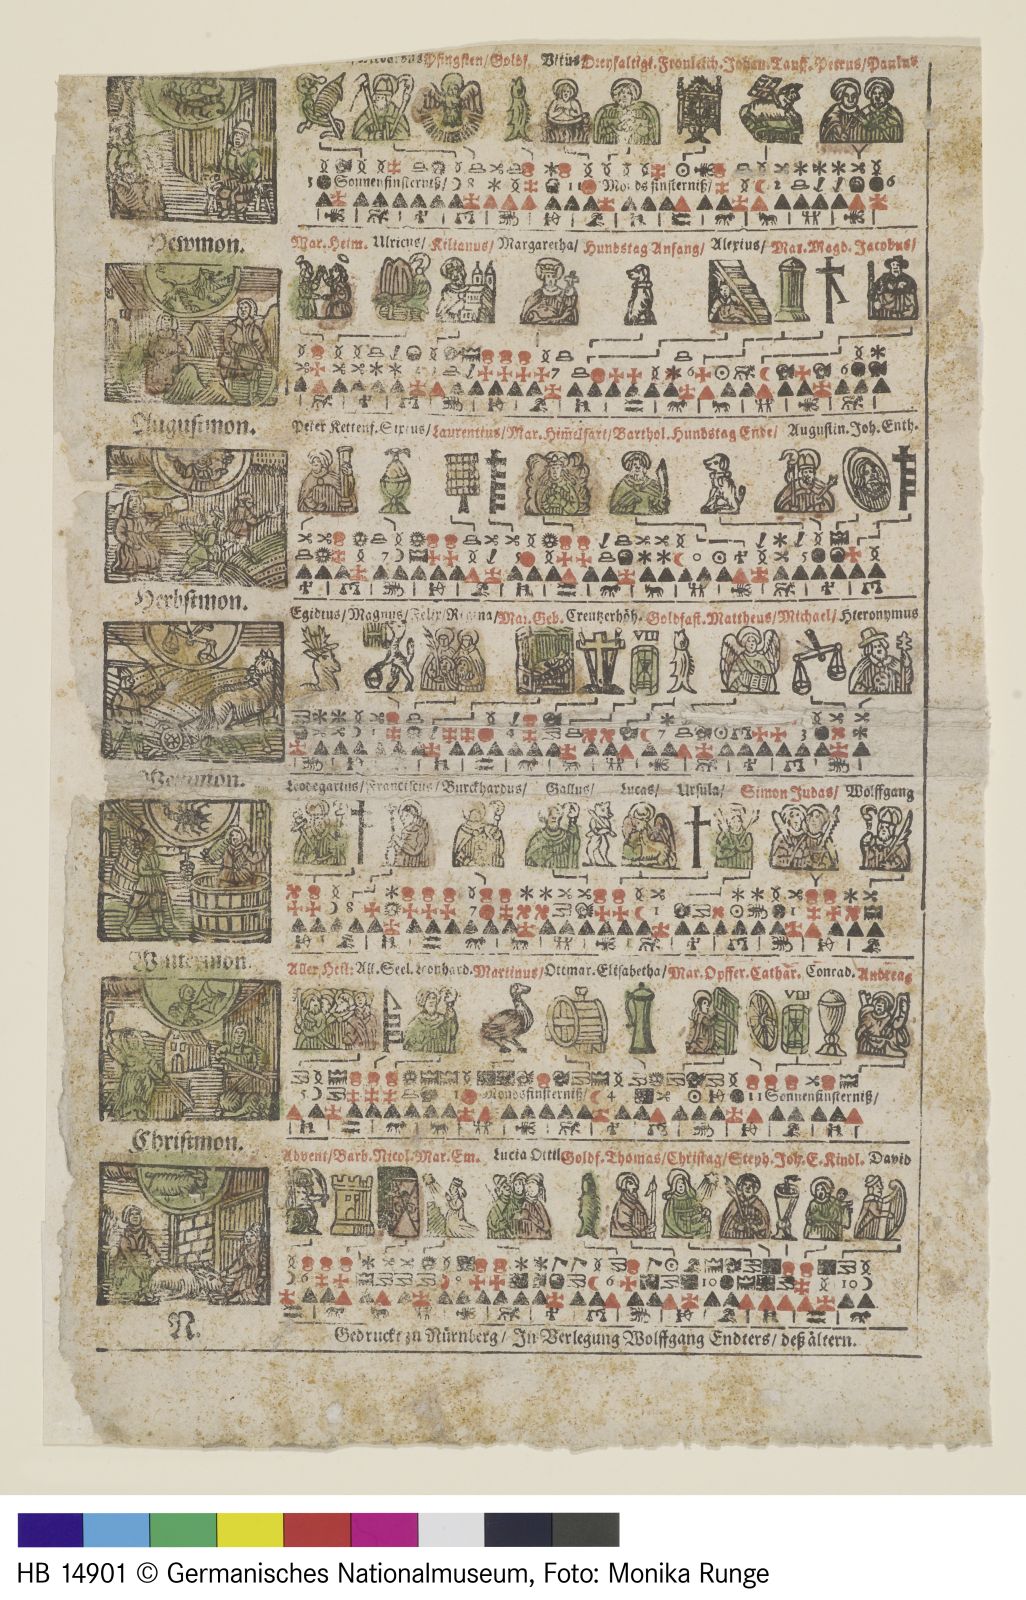 Pfingsten/Goldf. Vitus Dreyfaltigk. Fronleich. Johan. Tauff. Petrus/Paulus
Sonnenfinsterniß/ 8 11 Mondsfinsterniß/ 2 6
Hewmon.
Mar. Heim. Ulricus/ Kilianus/ Margaretha/ Hundstag Anfang/ Alexius/ Mar. Magd. Jacobus/
7 6 6
Augustmon.
Peter Kettenf. Sixtus/ Laurentius/ Mar. Him̃elfart/ Barthol. Hundstag Ende/ Augustin. Joh. Enth.
7 5
Herbstmon.
Egidius/ Magnus/ Felix/ Regina/ Mar. Geb. Creutzerhöh. Goldfast. Mattheus/ Michael/ Hieronymus
VIII
4 7 3
Leodegarius/ Franciscus/ Burckhardus/ Gallus/ Lucas/ Ursula/ Simon Judas/ Wolffgang
8 7 1 1
Wintermon.
Aller Heil: All. Seel. Leonhard. Martinus/ Ottmar. Elisabetha/ Mar. Opffer. Cathar. Conrad. Andreas
VIII
5 1 Mondsfinsterniß/ 4 11 Sonnenfinsterniß/
Christmon.
Advent/ Barb. Nicol. Mar. Em. Lucia Ottil Goldf. Thomas/ Christag/ Steph. Joh. E. Kindl. David
6 9 6 10 10
N.
Gedruckt zu Nürnberg/ In Verlegung Wolffgang Endters/ deß ältern.
HB 14901 © Germanisches Nationalmuseum, Foto: Monika Runge